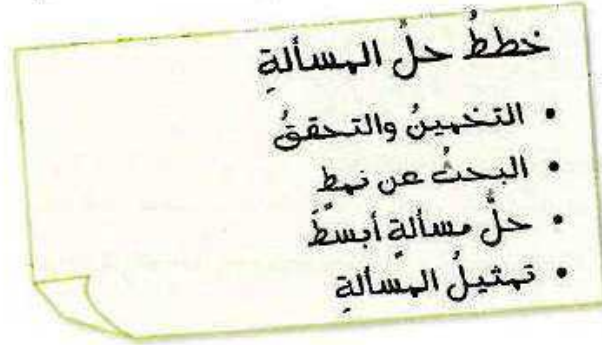 خططُ حلِّ المسألةِ
• التخمينُ والتحققُ
• البحثُ عن نمطٍ
• حلُّ مسألةٍ أبسطَ
• تمثيلُ المسألةِ